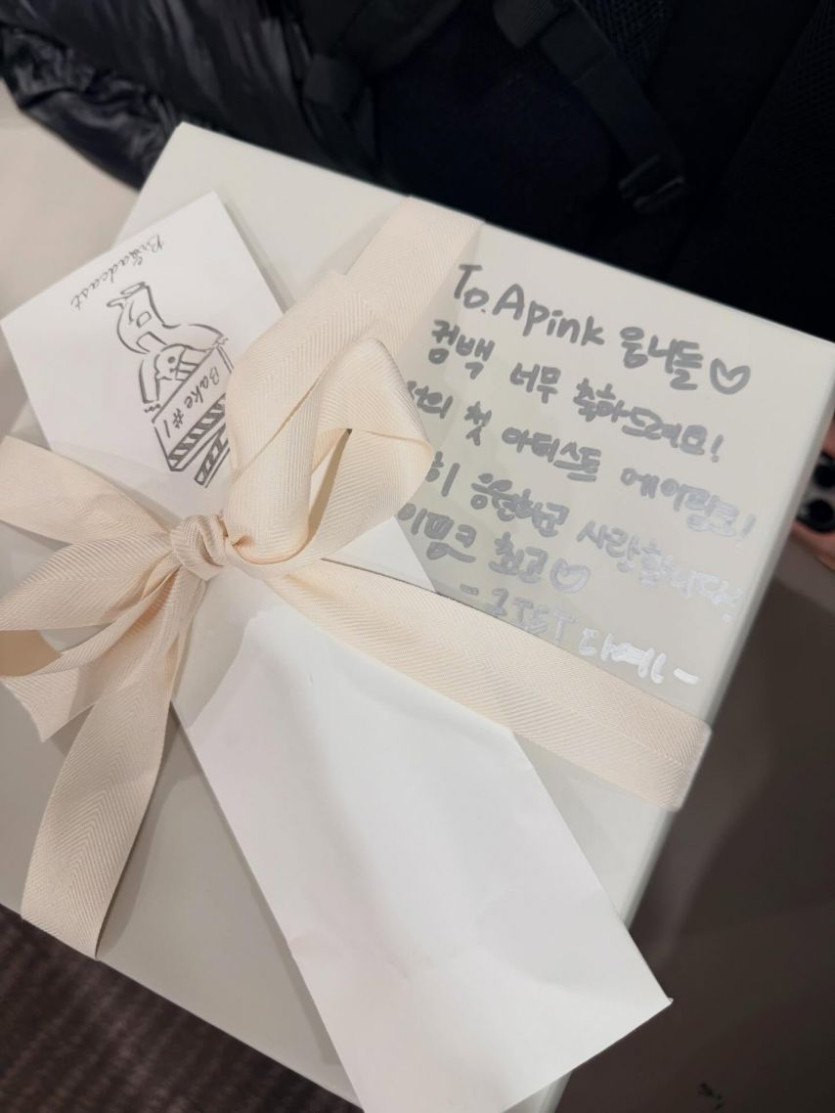 Broadcast
Bake #1
To. Apink 응니들♡
컴백 너무 축하드려요!
의 첫 아티스트 에이핑크!
히 응원하고 사랑합니다!
이핑크 최고♡